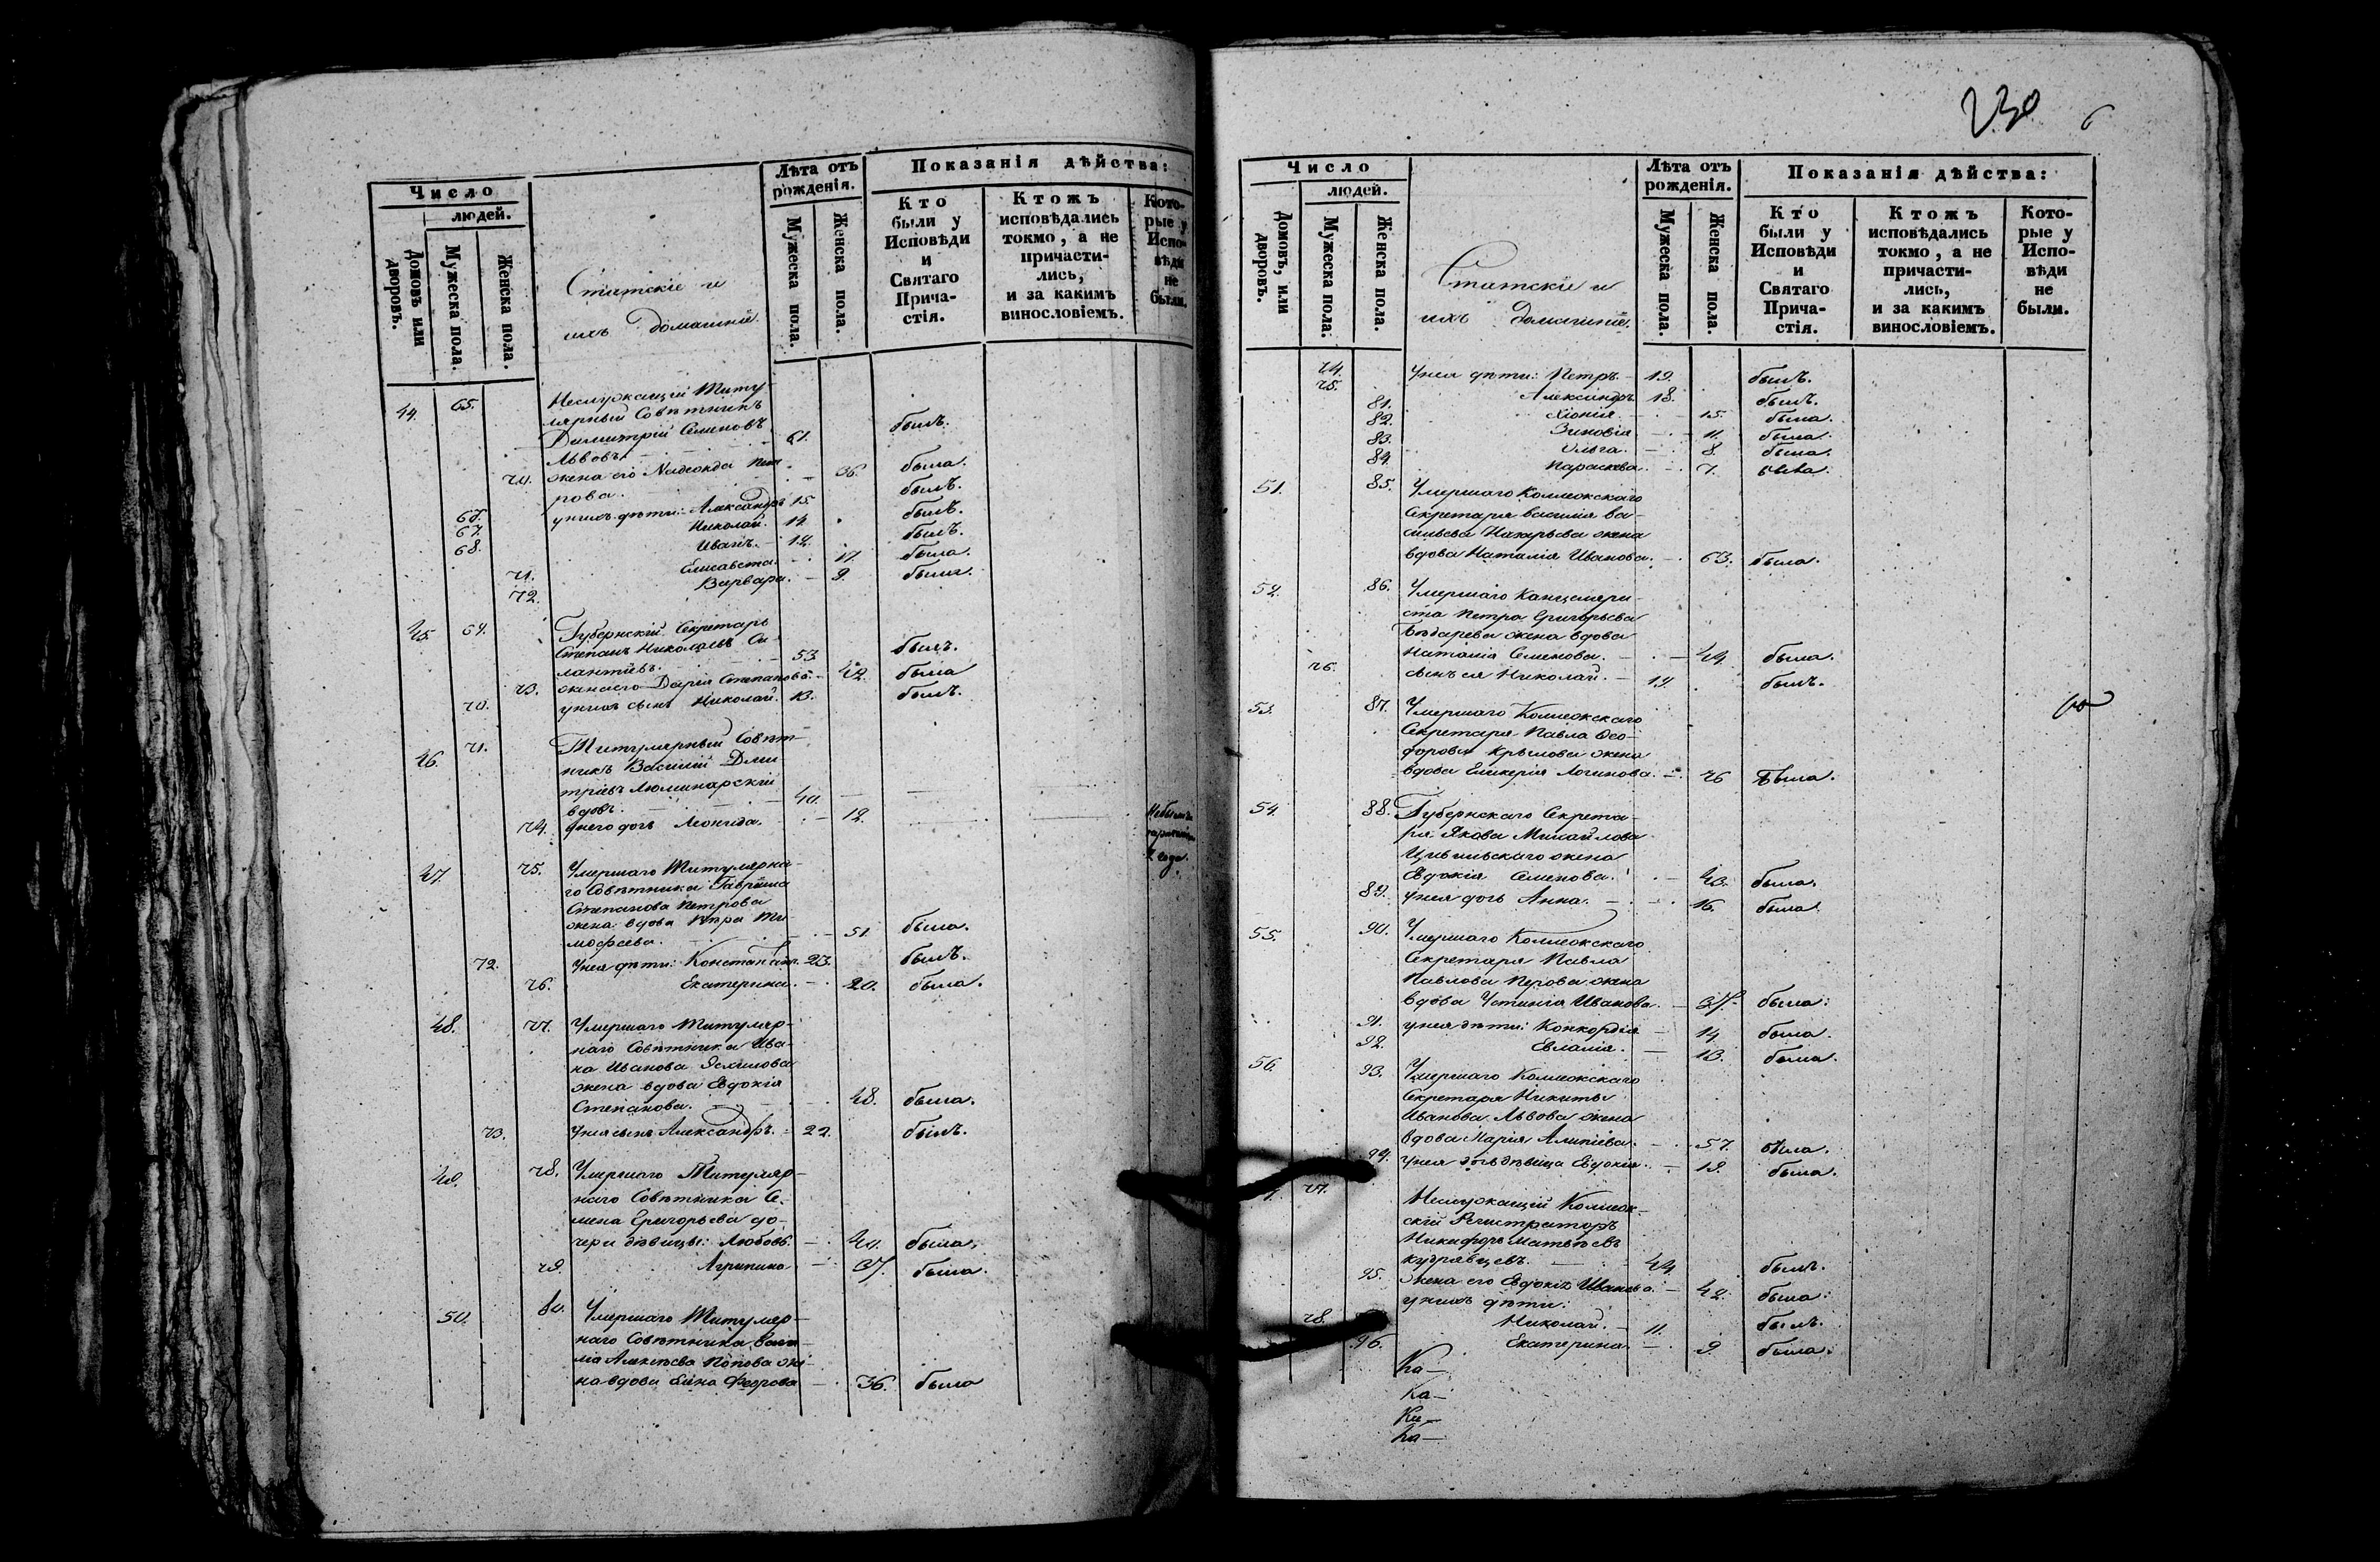 Число
людей.
Домовъ или дворовъ.
Мужеска пола.
Женска пола.
Статскіе и
ихъ домашніе.
Лѣта отъ рожденія.
Мужеска пола.
Женска пола.
Показанія дѣйства:
Кто были у Исповѣди и Святаго Прича-стія.
Ктожъ исповѣдались токмо, а не причасти-лись, и за какимъ винословіемъ.
Кото-рые у Испо-вѣди не были.
44. 65. Неслужащій Титу-
лярный Совѣтникъ
Димитрій Семеновъ
Львовъ. 61. былъ.
70. жена его Надежда Пет-
рова. 36. была.
66. у нихъ дѣти: Александръ 15. былъ.
67. Николай. 14. былъ.
68. Иванъ. 12. былъ.
71. Елисавета. 17. была.
72. Варвара. 9. была.
45. 69. Губернскій Секретарь
Степанъ Николаевъ Си-
лантіевъ. 53 былъ.
73. жена его Дарія Степанова. 42. была
70. у нихъ сынъ Николай. 13. былъ.
46. 71. Титулярный Совѣт-
никъ Василій Дми-
тріевъ Люминарскій
вдовъ. 40.
74. у него дочь Леонида. 12.
47. 75. Умершаго Титулярна-
го Совѣтника Гавріила
Степанова Петрова
жена вдова Ти-
мофеева. 51. была.
72. У нея дѣти: Константинъ. 23. былъ.
76. Екатерина. 20. была.
48. 77. Умершаго Титуляр-
наго Совѣтника Ива-
на Иванова
жена вдова Евдокія
Степанова. 48. была.
73. У нея сынъ Александръ. 22. былъ.
49. 78. Умершаго Титуляр-
наго Совѣтника Се-
мена Григорьева до-
чери дѣвицы: Любовь. 40. была.
79. Агрипина 37. была.
50. 80. Умершаго Титуляр-
наго Совѣтника Васи-
лія Алексѣева Попова же-
на вдова Елена Федорова 36. была
230 6
Число
людей.
Домовъ, или дворовъ.
Мужеска пола.
Женска пола.
Статскіе и
ихъ домашніе.
Лѣта отъ рожденія.
Мужеска пола.
Женска пола.
Показанія дѣйства:
Кто были у Исповѣди и Святаго Прича-стія.
Ктожъ исповѣдались токмо, а не причасти-лись, и за какимъ винословіемъ.
Кото-рые у Испо-вѣди не были.
74. У нея дѣти: Петръ. 19. былъ.
75. Александръ 18. былъ.
81. Хіонія. 15 была.
82. Зиновія 11. была.
83. Ольга. 8. была.
84. Параскева. 7. была.
51. 85. Умершаго Коллежскаго
Секретаря Василія Ва-
сильева Назарьева жена
вдова Наталія Иванова. 63. была.
52. 86. Умершаго Канцеляри-
ста Петра Григорьева
жена вдова
Наталія Семенова. 49. была.
76. сынъ ея Николай. 19. былъ.
53. 87. Умершаго Коллежскаго
Секретаря Павла Ѳео-
дорова Крылова жена
вдова Гликерія Логинова. 76 Была.
54. 88. Губернскаго Секрета-
ря Якова Михайлова
Цивильскаго жена
Евдокія Семенова. 43. была.
89. У нея дочь Анна. 16. была.
55. 90. Умершаго Коллежскаго
Секретаря Павла
Павлова Перова жена
вдова Устинія Иванова. 37. была.
91. у нея дѣти: Конкордія 14. была.
92. Евлалія. 13. была.
56. 93. Умершаго Коллежскаго
Секретаря Никиты
Иванова Львова жена
вдова Марія Алипіева. 57. была.
94. У нея дочь дѣвица Евдокія. 19. была.
77. Неслужащій Коллеж-
скій Регистраторъ
Никифоръ Матвѣевъ
Кудрявцевъ. 44. былъ.
95. Жена его Евдокія Иванова. 42. была.
у нихъ дѣти:
78. Николай. 11. былъ.
96. Екатерина. 9. была.
Ка—
Ка—
Ка—
Ка—